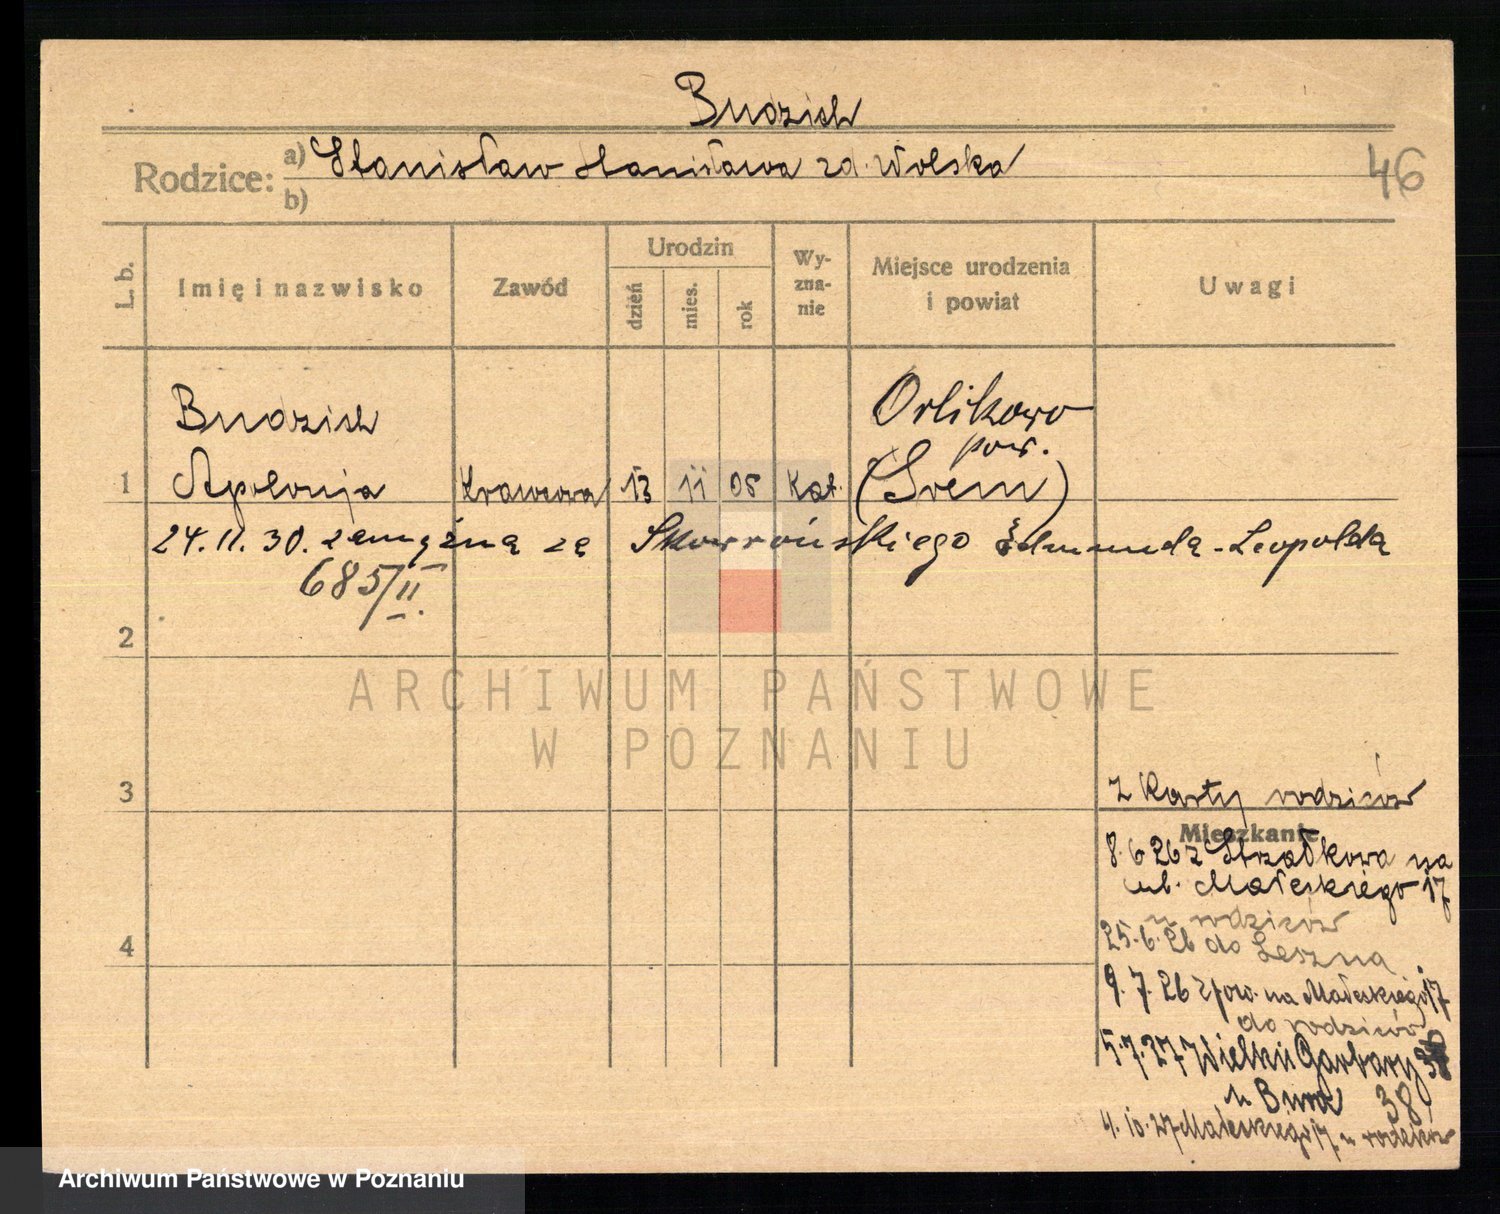 Budzich
Rodzice: a) Stanisław Stanisława zd. Wolska
b)
46
L. b.
Imię i nazwisko
Zawód
Urodzin
dzień
mies.
rok
Wy-
zna-
nie
Miejsce urodzenia
i powiat
Uwagi
Budzich
Orlikowo
pow.
1 Apolonja Krawcowa 13 11 05 Kat. (Śrem)
24.11.30. zamężną zą Skowrońskiego Edmundą-Leopoldą
685/II.
2
ARCHIWUM PAŃSTWOWE
W POZNANIU
3
z Karty rodziców
Mieszkanie
8.6 26 z Strzałkowa na
ul. Małeckiego 17
u rodziców
25.6.26 do Leszna
4
9.7.26 z pow. na Małeckiego 17
do rodziców
5.7.27 Wielkie Garbary
u Bura 38
4.10.27 Małeckiego 17 u rodziców
Archiwum Państwowe w Poznaniu